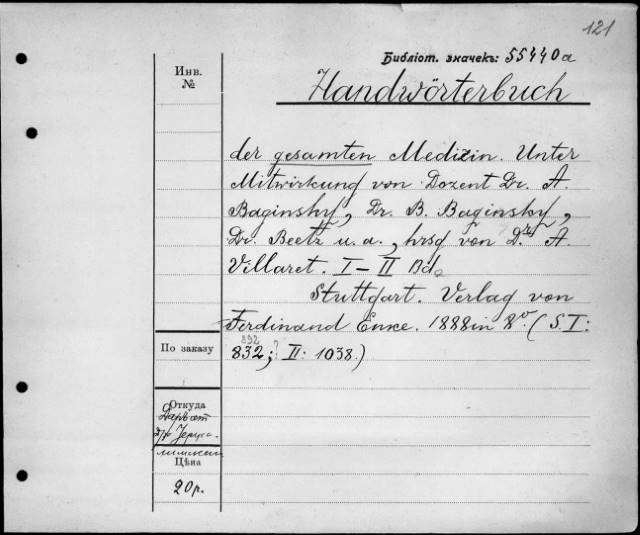 121
Библіот. значекъ: 55440a
Инв.
№
Handwörterbuch
der gesamten Medizin. Unter
Mitwirkung von Dozent Dr. A.
Baginsky, Dr. B. Baginsky,
Dr. Beetz u. a., hrsg von Dr A.
Villaret. I–II Bd.
Stuttgart. Verlag von
Ferdinand Enke. 1888 in 8º. (S. I:
892
832; II: 1038.)
По заказу
Откуда
Цѣна
20 р.